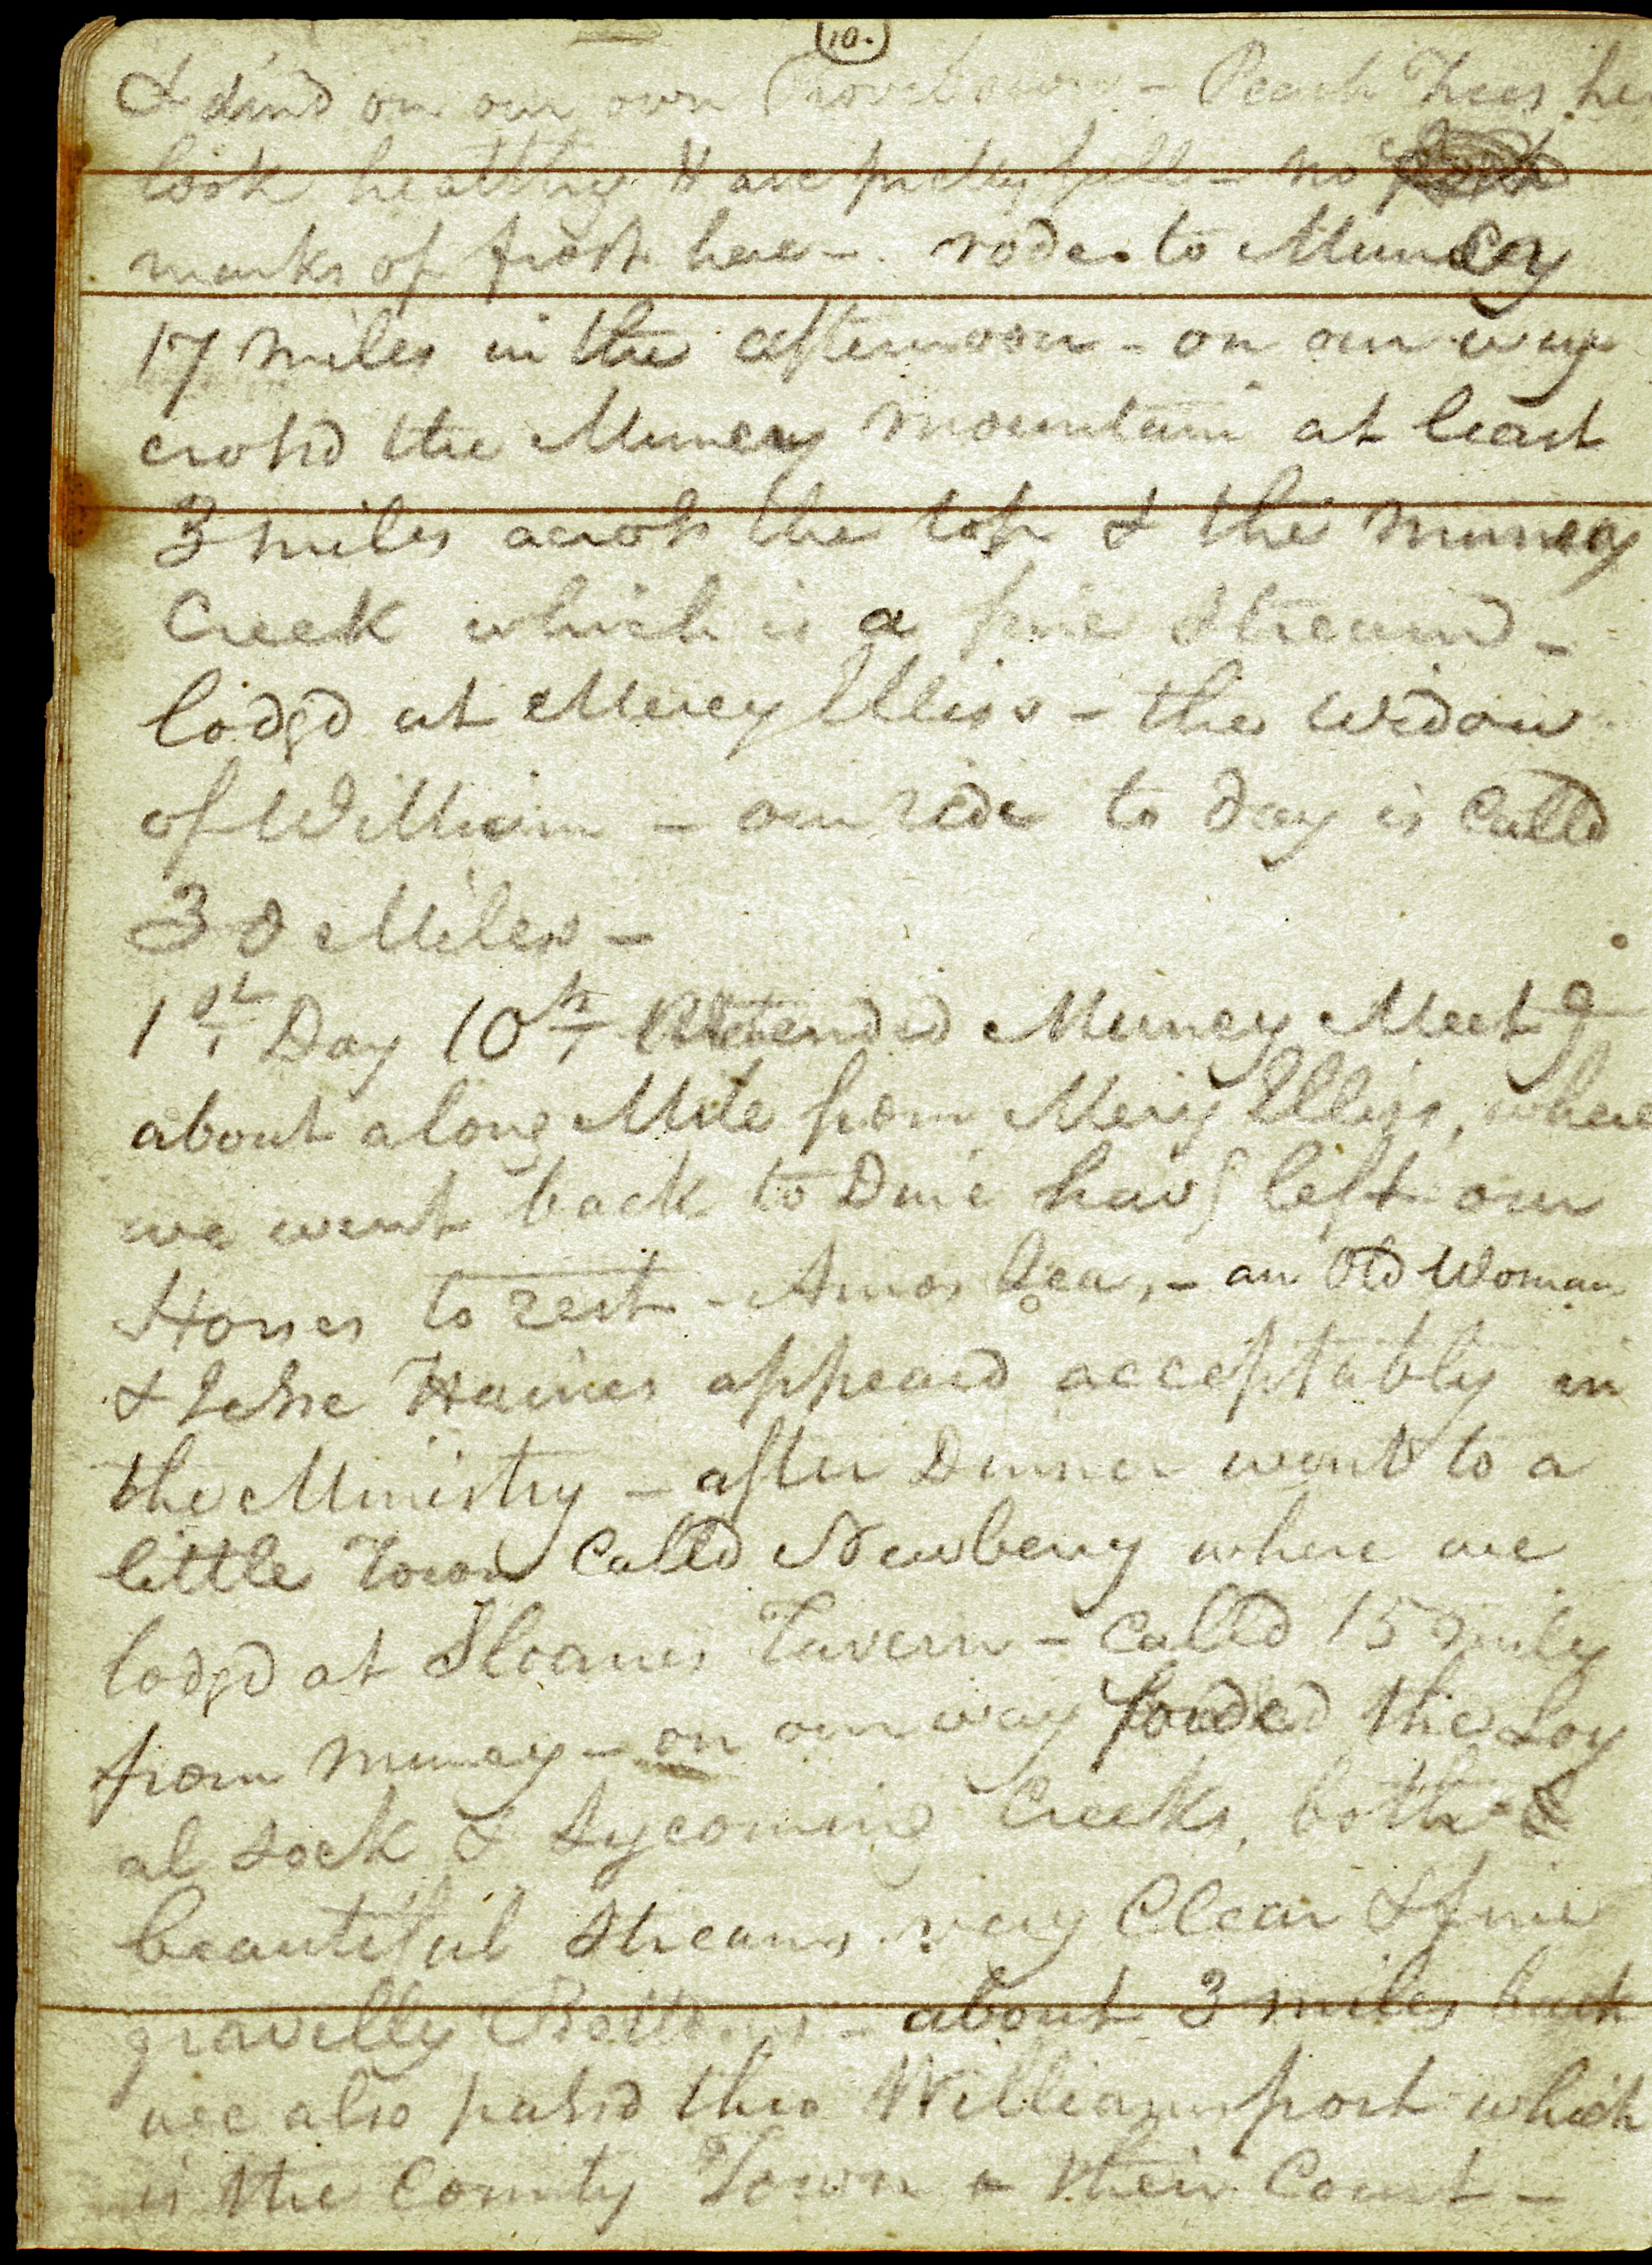 10.
& din'd on our own Provisions - Peach Trees he
look healthy & are pretty full - no
marks of frost here - rode to Muncy
17 miles in the afternoon - on our way
cross'd the Muncy mountain at least
3 miles across the top & the muncy
Creek which is a fine Stream -
lodg'd at Mercy Ellis's - the widow
of William - our ride to day is Call'd
30 Miles -
1st Day 10th Attended Muncy Meetg
about a long Mile from Mercy Ellis's, where
we went back to Dine havg left our
Horses to rest - Amos Lea, - an Old Woman
& Jesse Haines appeard acceptably in
the Ministry - after Dinner went to a
little Town Call'd Newberry where we
lodg'd at Sloanes Tavern - Call'd 15 miles
from muncy - on our way forded the Loy
al sock & Lycoming Creeks, both
beautiful Streams very Clear & fine
gravelly Bottoms - about 3 miles back
we also pass'd thro Williamsport which
is the County Town & their Court -